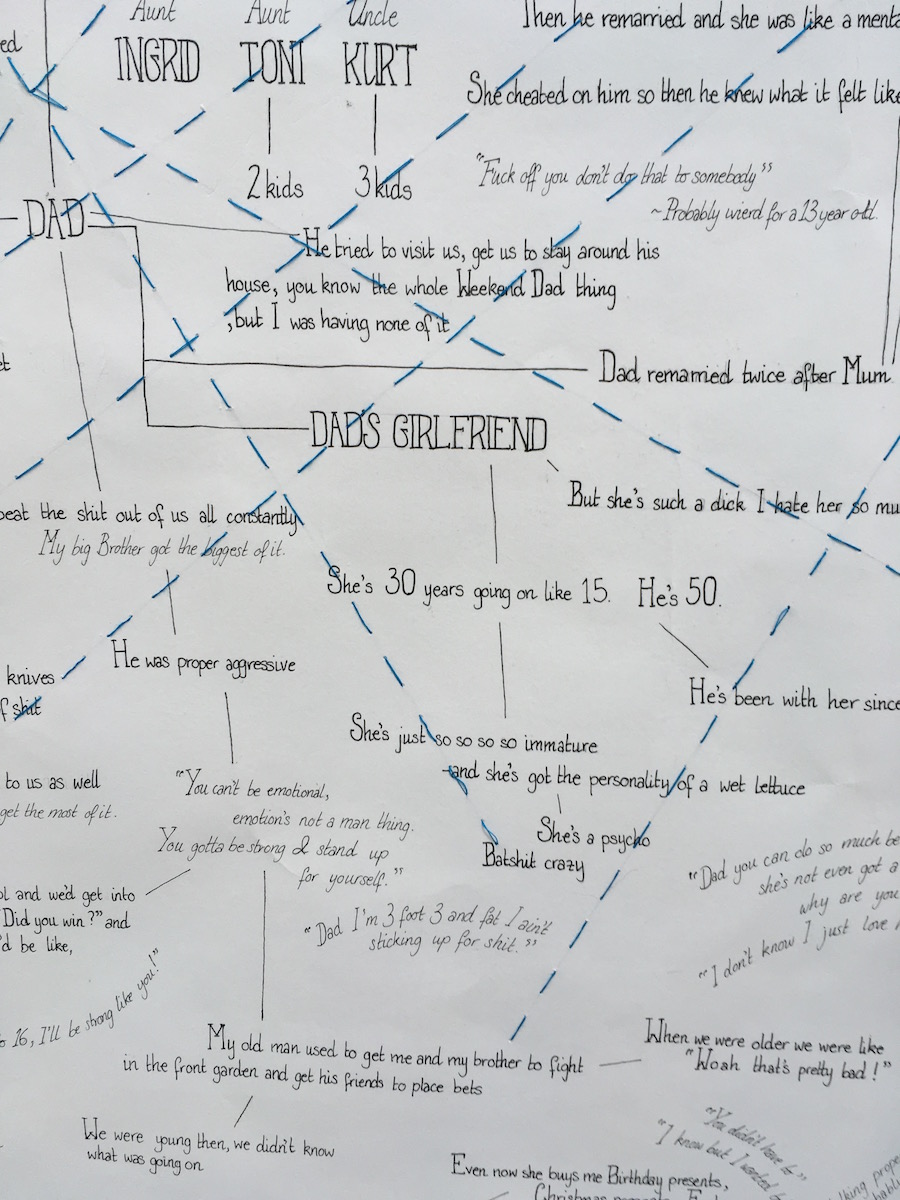 Aunt
INGRID
Aunt
TONI
2 kids
Uncle
KURT
3 kids
Then he remarried and she was like a
She cheated on him so then he knew what it felt like
"Fuck off you don't do that to somebody"
~Probably wierd for a 13 year old.
DAD
He tried to visit us, get us to stay around his
house, you know the whole Weekend Dad thing
,but I was having none of it
Dad remarried twice after Mum
DAD'S GIRLFRIEND
But she's such a dick I hate her so
beat the shit out of us all constantly
My big Brother got the biggest of it.
She's 30 years going on like 15.
He's 50.
He was proper aggressive
knives
shit
He's been with her since
She's just so so so so immature
-and she's got the personality of a wet lettuce
She's a psycho
Batshit crazy
to us as well
get the most of it.
"You can't be emotional,
emotion's not a man thing.
You gotta be strong & stand up
for yourself."
"Dad I'm 3 foot 3 and fat I ain't
sticking up for shit."
and we'd get into
"Did you win?" and
be like,
16, I'll be strong like you!"
"Dad you can do so much
she's not even got a
why are you
"I don't know I just love
My old man used to get me and my brother to fight
in the front garden and get his friends to place bets
When we were older we were like
"Woah that's pretty bad!"
We were young then, we didn't know
what was going on
"You didn't have to"
"I know but I wanted to
Even now she buys me Birthday presents,
Christmas